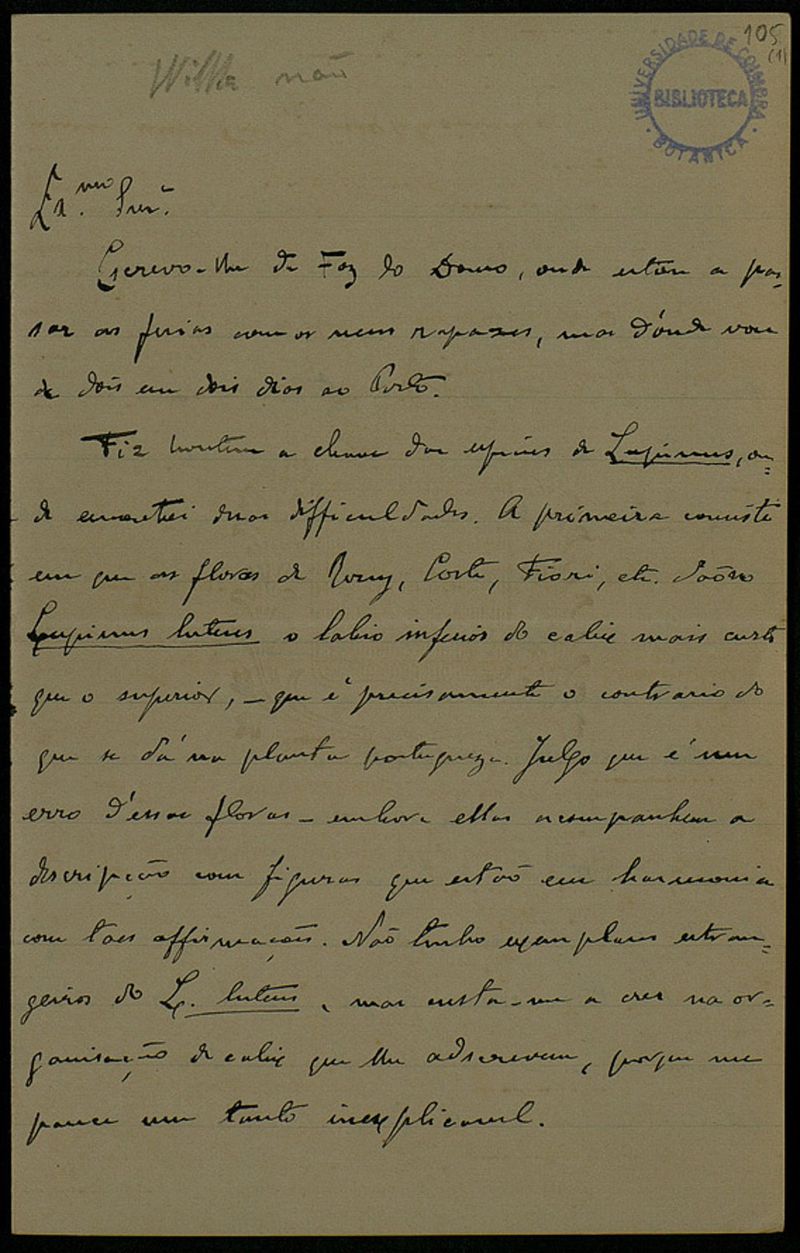 105
(1)
UNIVERSIDADE DE COIMBRA
BIBLIOTECA
BOTANICA
não
Ex.mo Snr.
Escrevo-lhe da Foz do Douro, onde estou a pas-
sar as ferias com os meus rapazes, mas d'onde vou
de dois em dois dias ao Porto.
Fiz hontem a chave das especies de Lupinus, on-
de encontrei duas difficuldades. A primeira consiste
em que as floras de Rouy, Coste, Fiori, etc. dão no
Lupinus luteus o labio inferior do calix mais curto
que o superior, - que é precisamente o contrario do
que se dá na planta portugueza. Julgo que é um
erro d'essas floras - embora ellas acompanhem a
descripção com figuras que estão em harmonia
com taes affirmações. Não tenho exemplares estran-
geiros do L. luteus, mas custa-me a crer na or-
ganisação de calix que lhe adscrevem, porque me
parece um tanto inexplicavel.